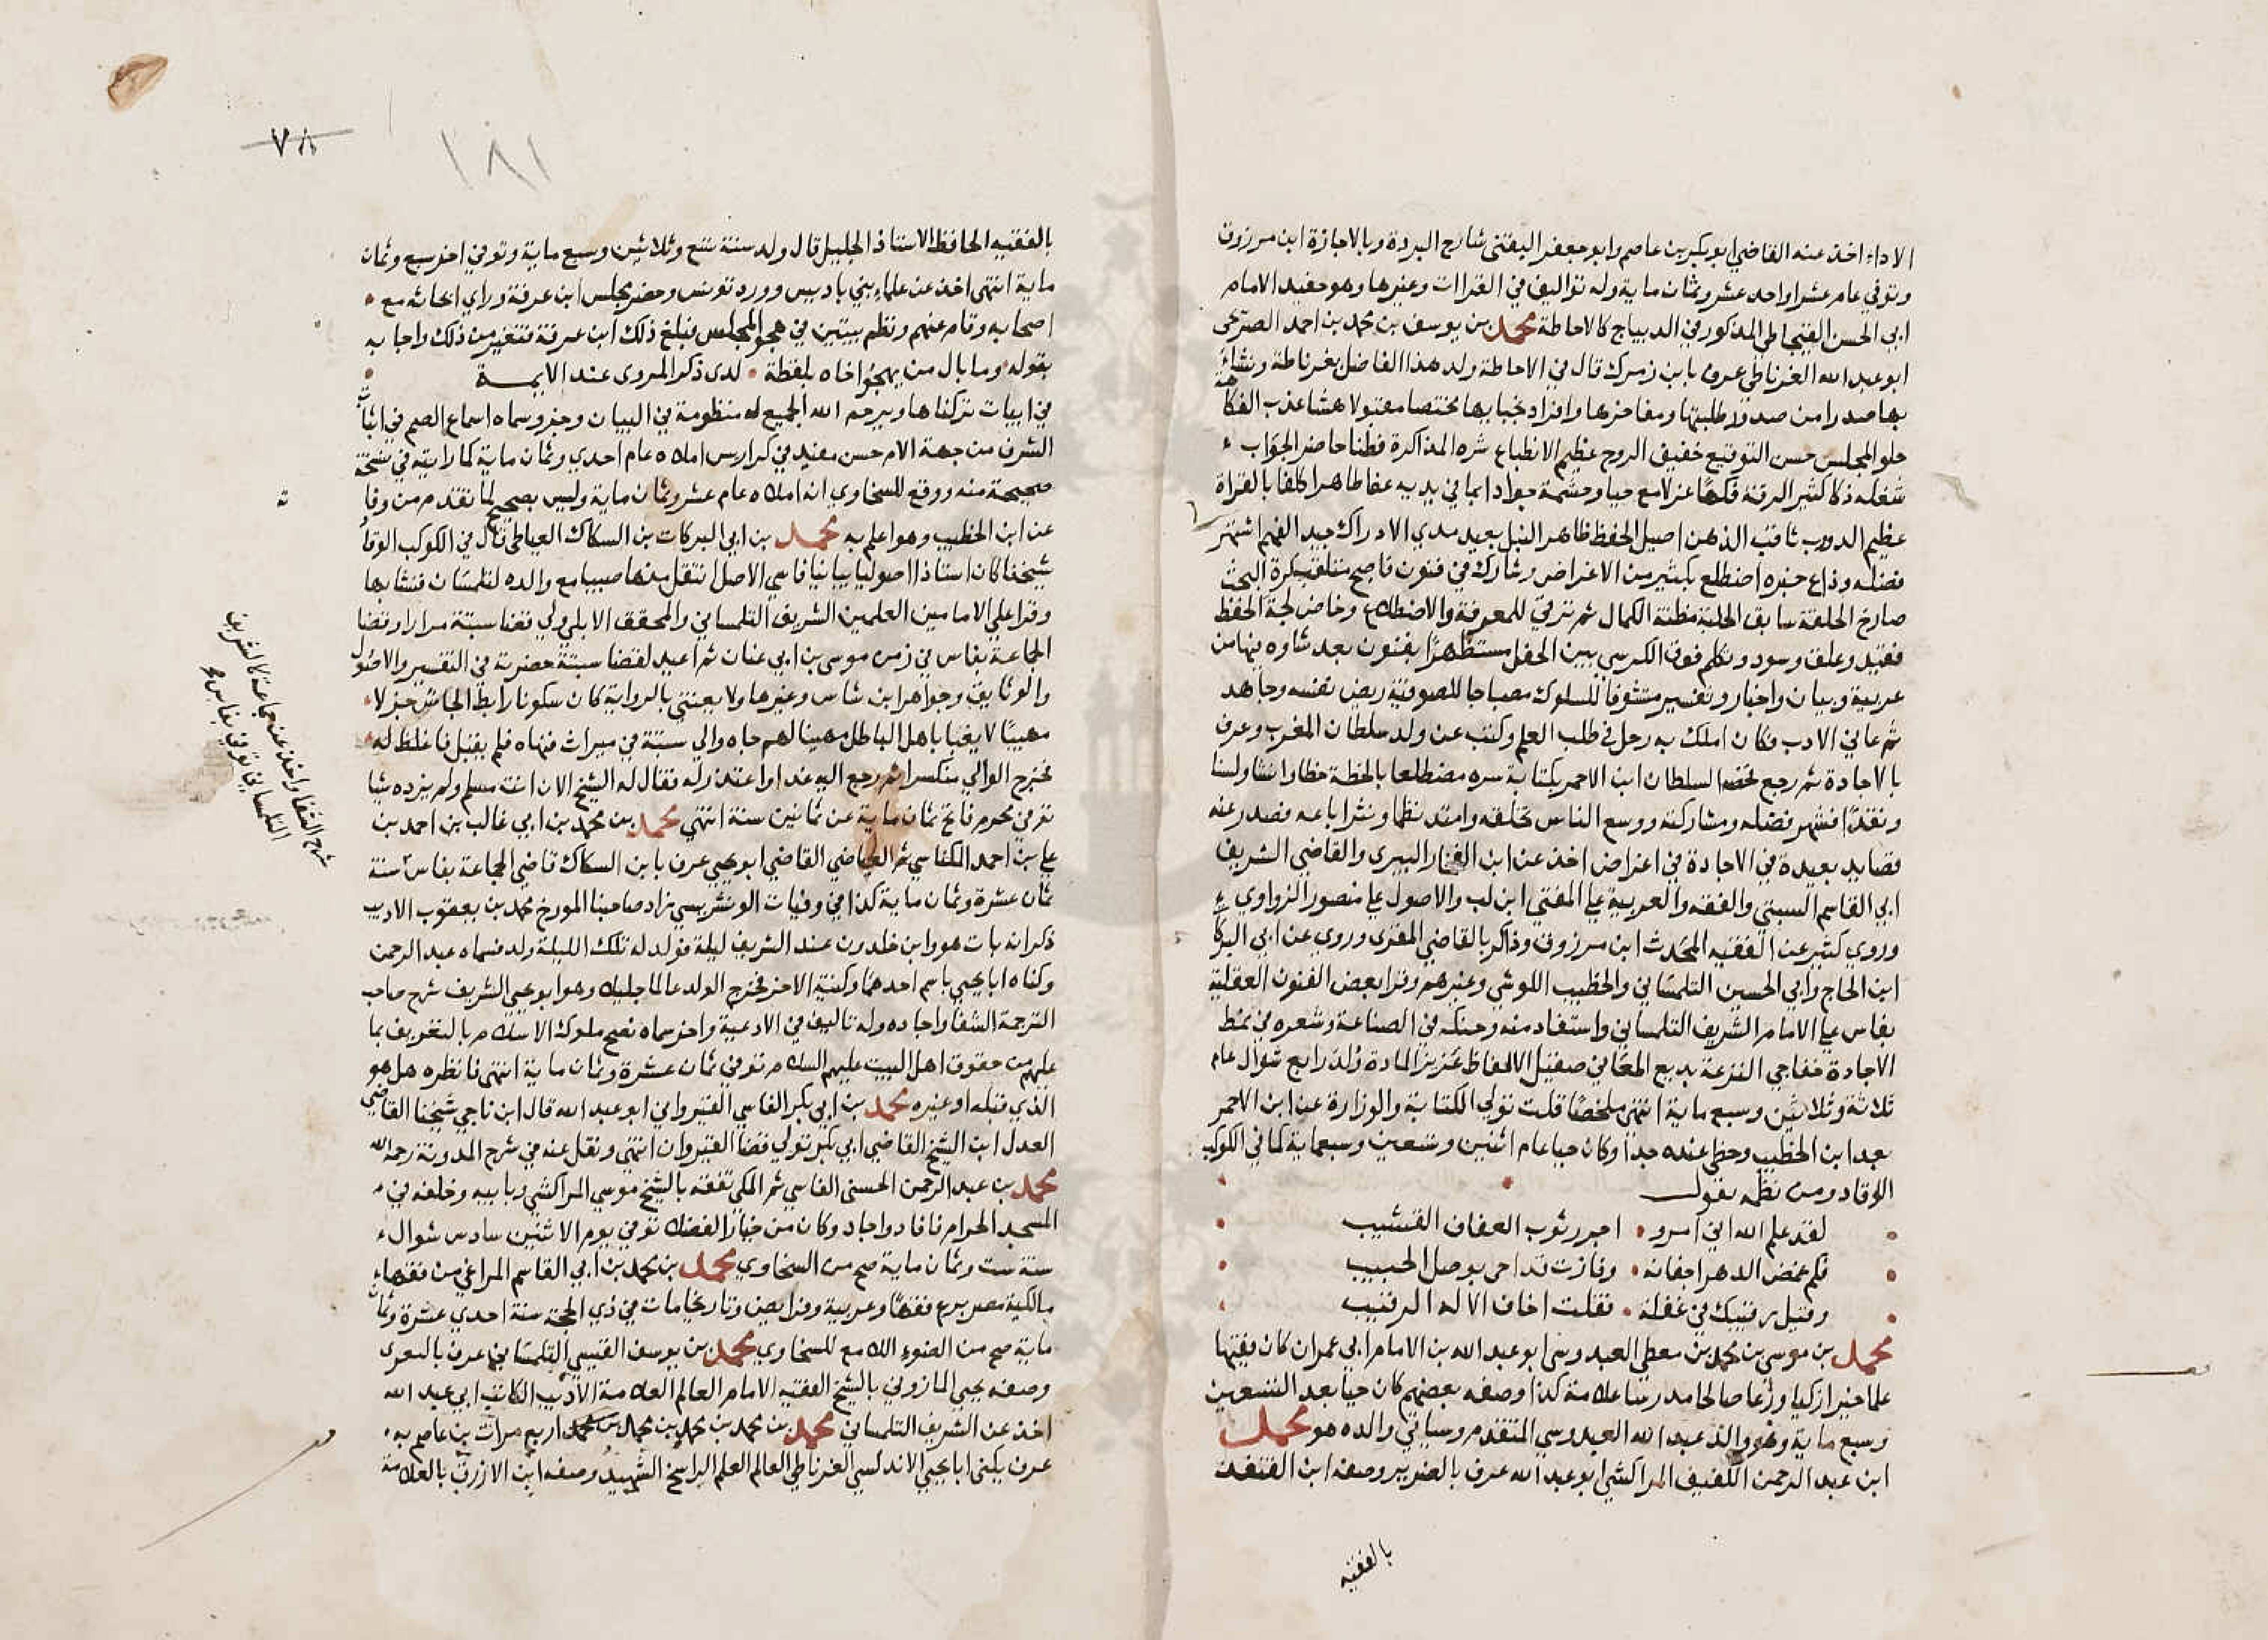 الاداء اخذ عنه القاضي ابو بكر بن عاصم وابو جعفر البقني شارح البردة وبالاجازة ابن مرزوق
وتوفي عام عشر او احد عشر وثمان ماية وله تواليف في القراات وغيرها وهو حفيد الامام
ابي الحسن القيجاطي المذكور في الديباج كالاحاطة محمد بن يوسف بن محمد بن احمد الصريحى
ابو عبد الله الغرناطي عرف بابن زمرك قال في الاحاطة ولد هذا الفاضل بغرناطة ونشاء
بها صدرا من صدور طلبتها ومفاخرها وافراد نجبايها مختصا مقبولا هشا عذب الفكاهة
حلو المجلس حسن التوقيع خفيف الروح عظيم الانطباع شره المذاكرة فطنا حاضر الجواب
شعلة ذكا كثير الرقة فكها غزلا مع حيا وحشمة جوادا بما في يديه عفا طاهرا كلفا بالقراة
عظيم الدوب ثاقب الذهن اصيل الحفظ ظاهر النبل بعيد مدي الادراك جيد الفهم اشتهر
فضله وذاع خبره اضطلع بكثير من الاغراض وشارك في فنون فاصبح متلقف كرة البحث
صارخ الحلقة سابق الحلبة مظنة الكمال ثم ترقي للمعرفة والاضطلاع وخاض لجة الحفظ
فقيد وعلق وسود وتكلم فوق الكرسي بين الحفل مستظهرا بفنون بعد شاوه فيها من
عربية وبيان واخبار وتفسير متشوفا للسلوك مصباحا للصوفية ريض نفسه وجاهد
ثم عاني الادب فكان املك به رحل في طلب العلم وكتب عن ولد سلطان المغرب وعرف
بالاجادة ثم رجع لحضر السلطان ابن الاحمر بكتابة سره مضطلعا بالخطة خطا وانشا ولسنا
ونقدا فشهر فضله ومشاركته ووسع الناس تخلقه وامتد نظما ونثرا باعه فصدر عنه
قصايد بعيدة في الاجادة في اغراض اخذ عن ابن الفخار البيري والقاضي الشريف
ابي القاسم السبتي والفقه والعربية علي المفتي ابن لب والاصول علي منصور الزواوي
وروي كثير عن الفقيه المحدث ابن مرزوق وذاكر بالقاضي المقرى وروي عن ابي البركا
ابن الحاج وابي الحسين التلمساني والخطيب اللوشي وغيرهم وقرا بعض الفنون العقلية
بفاس علي الامام الشريف التلمساني واستفاد منه وحنكه في الصناعة وشعره في نمط
الاجادة خفاجي النزعة بديع المعاني صقيل الالفاظ غزيز المادة ولد رابع شوال عام
ثلاثة وثلاثين وسبع ماية انتهى ملخصا قلت تولي الكتابة والوزارة عن ابن الاحمر
بعد ابن الخطيب وحظي عنده جدا وكان حيا عام اثنين وتسعين وسبعماية كما في الكوكب
الوقاد ومن نظمه يقول
لقد علم الله اني امرو اجرر ثوب العفاف القشيب
فكم غمض الدهر اجفانه وفازت قداحى بوصل الحبيب
وقيل رقيبك في غفلة فقلت اخاف الاله الرقيب
محمد بن موسي بن محمد بن معطي العبدوسي ابو عبد الله بن الامام ابي عمران كان فقيها
علما خيرا زكيا ورعا صالحا مدرسا علامة كذا وصفه بعضهم كان حيا بعد التسعين
وسبع ماية وهو والد عبد الله العبدوسي المتقدم وسياتي والده هو محمد
ابن عبد الرحمن اللفيف المراكشي ابو عبد الله عرف بالضرير وصفه ابن القنفذ
بالفقيه
٧٨
١٨١
بالفقيه الحافظ الاستاذ الجليل قال ولد سنة تسع وثلاثين وسبع ماية وتوفي اخر سبع وثمان
ماية انتهى اخذ عن علماء بني باديس وورد تونس وحضر مجلس ابن عرفة وراي ابحاثه مع
اصحابه وقام عنهم ونظم بيتين في هجو المجلس فبلغ ذلك ابن عرفة فتغير من ذلك واجابه
بقوله وما بال من يهجوا اخاه بلفظة لدى ذكر المروى عند الايمة
في ابيات تركناها ويرحم الله الجميع له منظومة في البيان وجزو سماه اسماع الصم في اثبات
الشرف من جهة الام حسن مفيد في كراريس املاه عام احدي وثمان ماية كما رايته في نسخة
صحيحة منه ووقع للسخاوي انه املاه عام عشر وثمان ماية وليس بصحيح لما تقدم من وفا
ته
عن ابن الخطيب وهو اعلم به محمد بن ابي البركات بن السكاك العياطي قال في الكوكب الوقاد
شيخنا كان استاذا اصوليا بيانيا فاسي الاصل انتقل منها صبيا مع والده لتلمسان فنشا بها
وقرا علي الامامين العلمين الشريف التلمساني والمحقق الابلي ولي قضا سبتة مرارا وقضا
الجماعة بفاس في زمن موسي بن ابي عنان ثم اعيد لقضا سبتة حضرته في التفسير والاصول
والوثايق وجواهر ابن شاس وغيرها ولا يعتني بالرواية كان سكونا رابط الجاش جزلا
مهيبا لا يعبا باهل الباطل مهينا لهم جاه والي سبتة في ميراث فنهاه فلم يقبل فاغلظ له
فخرج الوالي منكسرا ثم رجع اليه غدا واعتذر له فقال له الشيخ الان انت مسلم ولم يزده شيا
توفي محرم فاتح ثمان ماية عن ثمانين سنة انتهي محمد بن محمد بن ابي غالب بن احمد بن
علي بن احمد المكناسي ثم العياضي القاضي ابو يحيي عرف بابن السكاك قاضي الجماعة بفاس سنة
ثمان عشرة وثمان ماية كذا في وفيات الونشريسي زاد صاحبنا المورخ محمد بن يعقوب الاديب
ذكر انه بات هو وابن خلدون عند الشريف ليلة فولد له تلك الليلة ولد فسماه عبد الرحمن
وكناه ابا يحيي باسم احدهما وكنية الاخر فخرج الولد عالما جليلا وهو ابو يحيي الشريف شرح صاحب
الترجمة الشفا واجاده وله تاليف في الادعية واخر سماه نصح ملوك الاسلام بالتعريف بما
عليهم من حقوق اهل البيت عليهم السلام توفي ثمان عشرة وثمان ماية انتهى فانظره هل هو
الذي قبله او غيره محمد بن ابي بكر الفاسي القيرواني ابو عبد الله قال ابن ناجي شيخنا القاضي
العدل ابن الشيخ القاضي ابي بكر تولي قضا القيروان انتهي ونقل عنه في شرح المدونة رحمه الله
محمد بن عبد الرحمن الحسنى الفاسي ثم المكي تفقه بالشيخ موسي المراكشي وبابيه وخلفه في
المسجد الحرام فافاد واجاد وكان من خيار الفضلا توفي يوم الاثنين سادس شوال
سنة ست وثمان ماية صح من السخاوي محمد بن محمد بن ابي القاسم المراغي من فقهاء
مالكية مصر برع فقها وعربية وفرايض وتاريخا مات في ذي الحجة سنة احدي عشرة وثمان
ماية صح من الضوء اللامع للسخاوي محمد بن يوسف القيسي التلمساني عرف بالثغرى
وصفه يحيي المازوني بالشيخ الفقيه الامام العالم العلامة الاديب الكاتب ابي عبد الله
اخذ عن الشريف التلمساني محمد بن محمد بن محمد بن محمد بن محمد اربع مرات بن عاصم به
عرف يكني ابا يحيي الاندلسي الغرناطي العالم العلم الراسخ الشهيد وصفه ابن الازرق بالعلامة
شرح الشفا واخذ عن جماعة كالشريف
التلمساني توفي بفاس